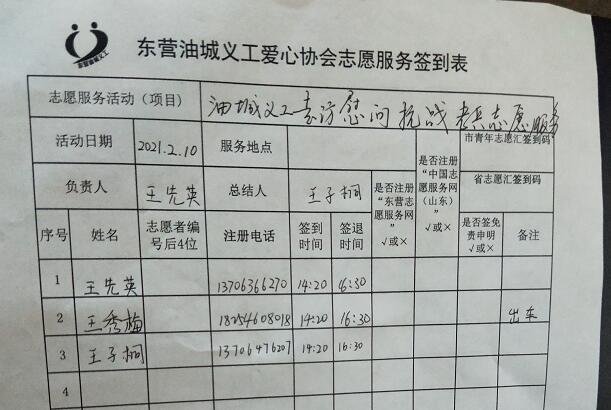 东营油城义工
东营油城义工爱心协会志愿服务签到表
志愿服务活动（项目） 油城义工走访慰问抗战老兵志愿服务
活动日期 2021.2.10 服务地点 市青年志愿汇签到码
负责人 王先英 总结人 王子桐 是否注册“东营志愿服务网” √或× 是否注册“中国志愿服务网（山东） √或× 省志愿汇签到码
序号 姓名 志愿者编号后4位 注册电话 签到时间 签退时间 是否签免责申明 √或× 备注
1 王先英 13706366270 14:20 16:30
2 王秀梅 18254608018 14:20 16:30 出车
3 王子桐 13706476207 14:20 16:30
4